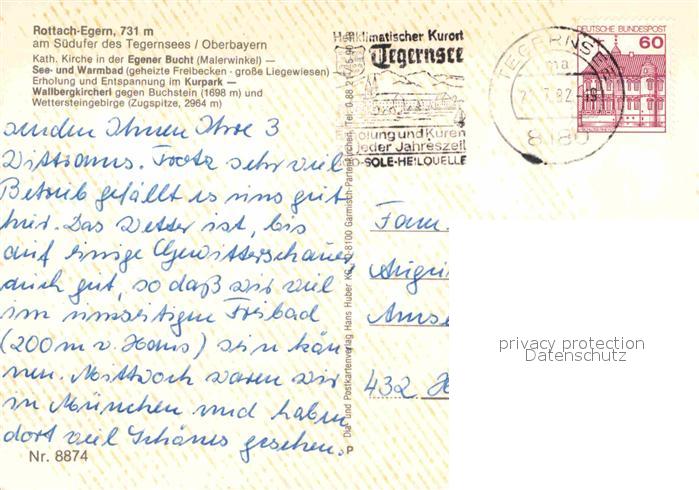 Rottach-Egern, 731 m
am Südufer des Tegernsees / Oberbayern
Kath. Kirche in der Egener Bucht (Malerwinkel) —
See- und Warmbad (geheizte Freibecken - große Liegewiesen) —
Erholung und Entspannung im Kurpark —
Wallbergkircherl gegen Buchstein (1698 m) und
Wettersteingebirge (Zugspitze, 2964 m)
senden Ihnen Ihre 3
Trotz sehr viel
Betrieb gefällt es uns gut
hier. Das Wetter ist, bis
auf einige Gewitterschauer
auch gut, so daß wir viel
im Freibad
(200 m v. Haus) sein kön
nen. Mittwoch waren wir
in München und haben
dort viel Schönes gesehen.
Nr. 8874
Heilklimatischer Kurort
Tegernsee
olung und Kuren
jeder Jahreszeit
OD-SOLE-HEILQUELLE
TEGERNSEE
ma
82
8180
DEUTSCHE BUNDESPOST
60
Dia- und Postkartenverlag Hans Huber KG, 8100 Garmisch-Partenkirchen, Tel. 0 88
P
Fam.
432
privacy protection
Datenschutz